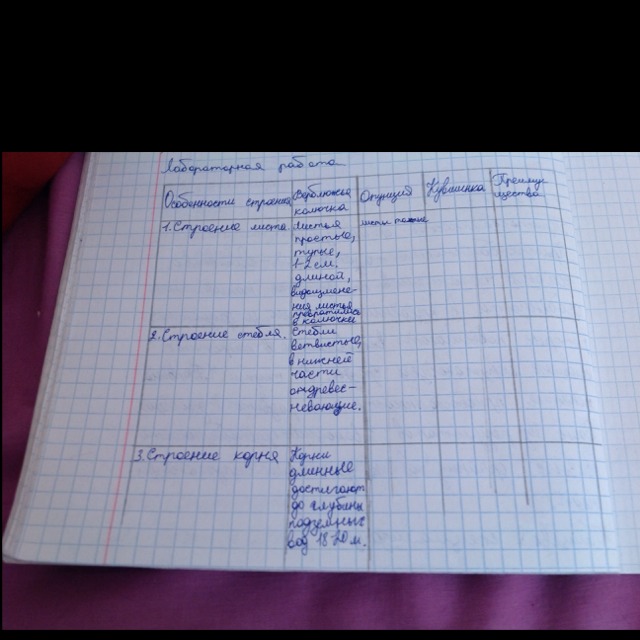 Лабораторная работа
Особенности строения
Верблюжья
колючка
Опунция
Кувшинка
Преиму-
щества
1. Строение листа.
Листья
простые,
тупые,
1-2 см
длиной,
видоизмене-
ния листья
превратились
в колючки
листы
2. Строение стебля.
Стебли
ветвистые,
в нижней
части
одревес-
невающие.
3. Строение корня
Корни
длинные
достигают
до глубины
подземных
вод 18-20 м.